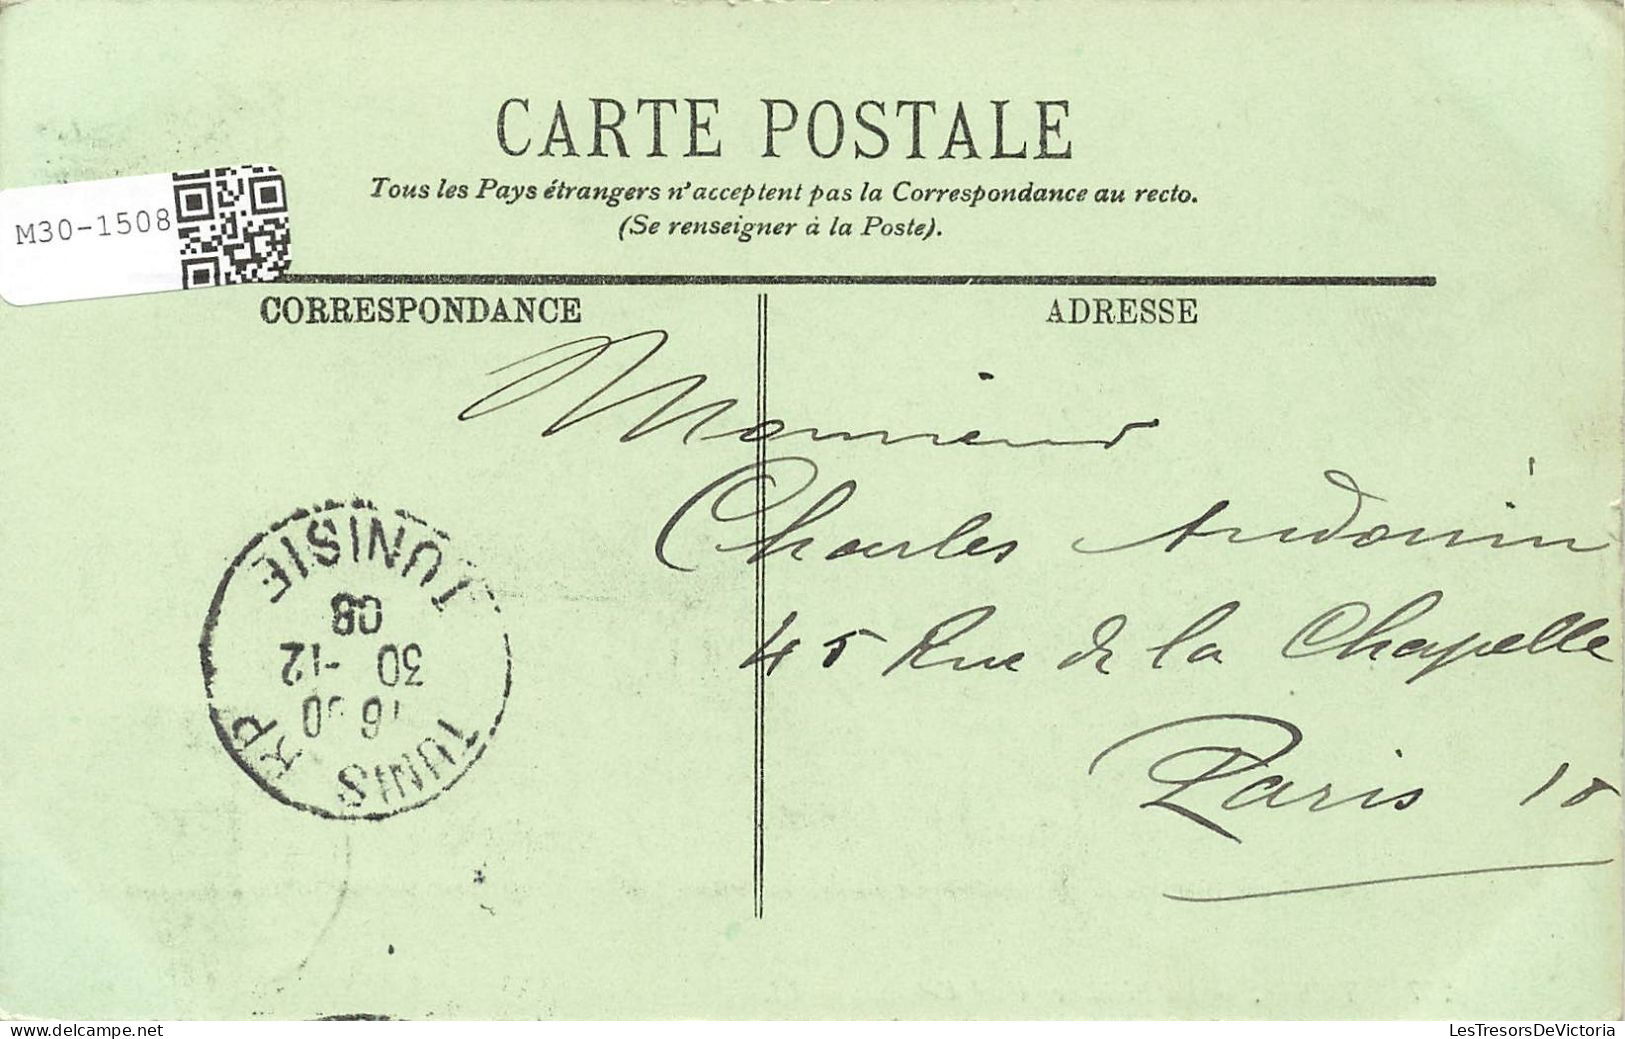 CARTE POSTALE
Tous les Pays étrangers n'acceptent pas la Correspondance au recto.
(Se renseigner à la Poste).
M30-1508
CORRESPONDANCE
ADRESSE
Monsieur
Charles Audouin
45 Rue de la Chapelle
Paris 18
TUNIS RP
30 -12
08
TUNISIE
delcampe.net
LesTresorsDeVictoria